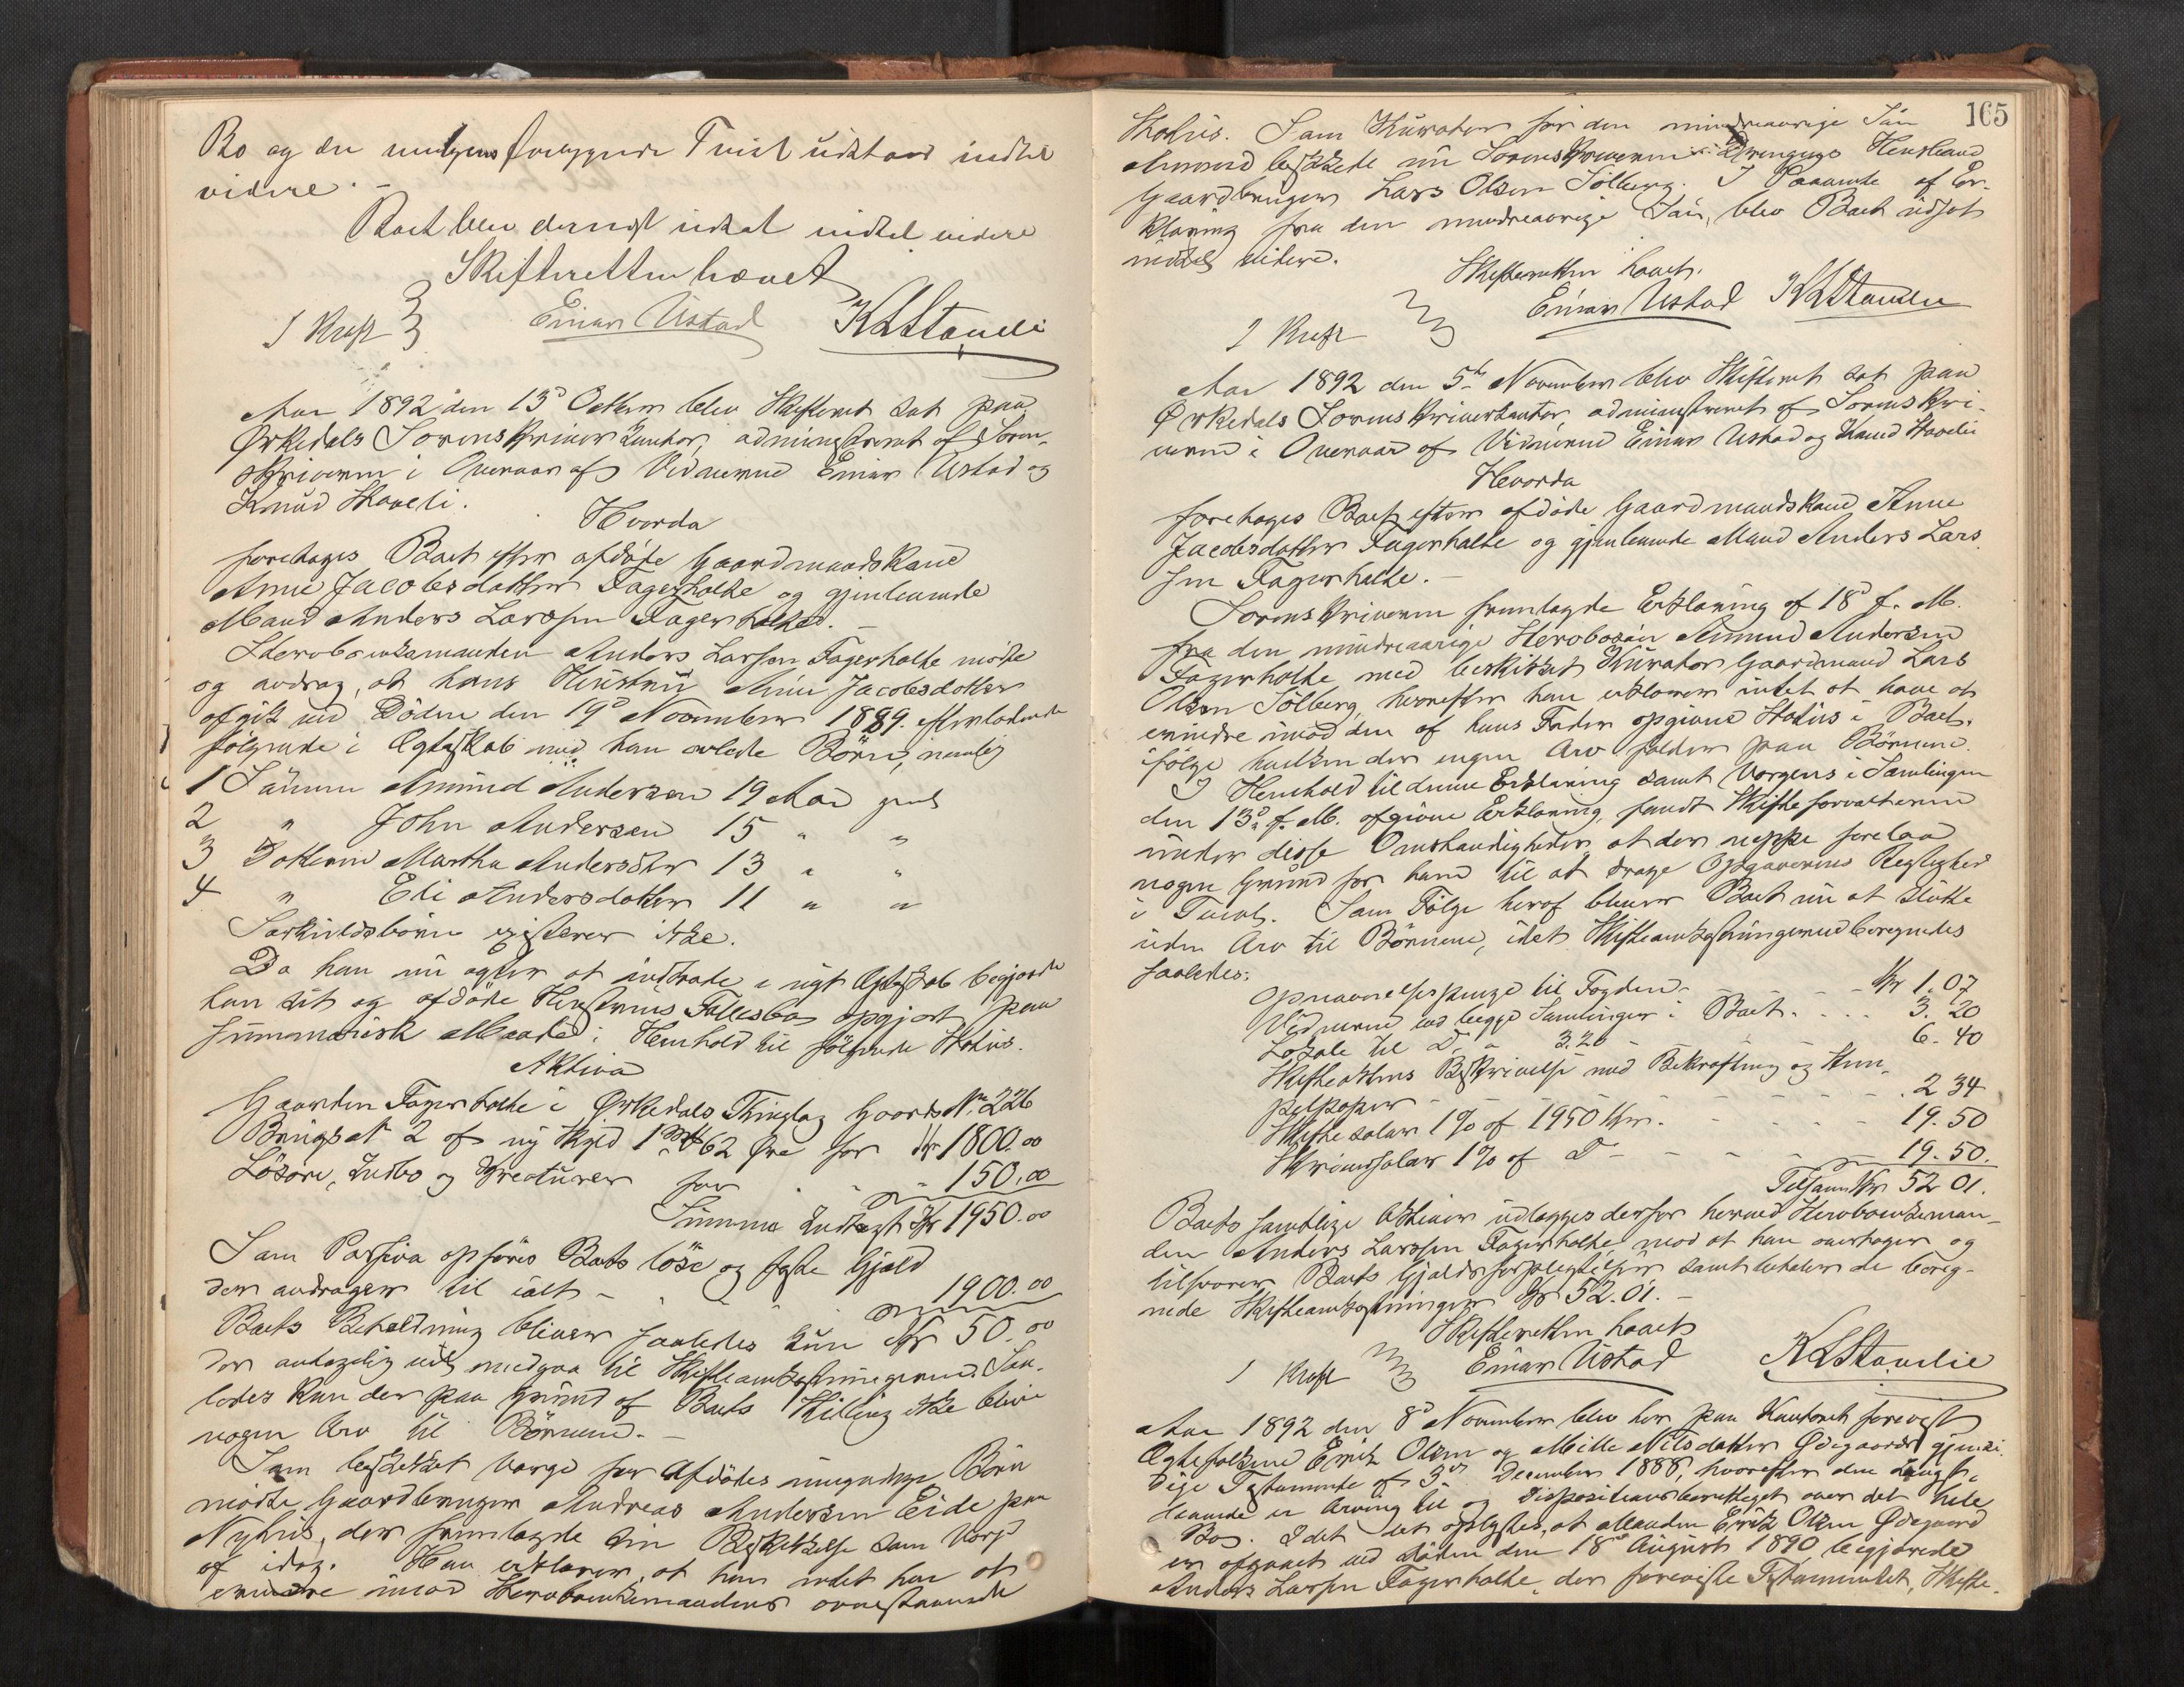 Bo og den muligens foreliggende Tvist udstaar indtil
videre. -
Boet blev dernæst udsat indtil videre
Skifteretten hævet
1 Krft Einar Ustad KLStaveli
Aar 1892 den 13d October blev Skifteret sat paa
Ørkedals Sorenskriverkontor, administreret af Soren-
skriveren i Overvær af Vidnerne Einar Ustad og
Knud Staveli.
Hvorda
foretoges Boet efter afdøde Gaardmandskone
Anne Jacobsdatter Fagerholte og gjenlevende
Mand Anders Larssen Fagerholte. -
Sterboenkemanden Anders Larsen Fagerholte mødte
og androg, at hans Hustru Anne Jacobsdatter
afgik ved Døden den 19d November 1889 efterladende
følgende i Ægteskab med ham avlede Børn, nemlig
1 Sønnen Amund Andersen 19 Aar gml
2 " John Andersen 15 " "
3 Datteren Martha Andersdtr 13 " "
4 " Eli Andersdatter 11 " "
Særkuldsbørn existerer ikke.
Da han nu agter at indtræde i nyt Ægteskab begjærte
han sit og afdøde Hustrues Fællesbo opgjort paa
summarisk Maade i Henhold til følgende Status.
Aktiva
Gaarden Fagerholte i Ørkedals Thinglag Gaards No 226
Brugs No 2 af ny Skyld 1 Mk 62 Øre for Kr 1800.00
Løsøre, Indbo og Kreaturer for " 150.00
Summa Indtægt Kr 1950.00
Som Passiva opføres Boets løse og faste Gjæld
der andrager til ialt - 1900.00
Boets Beholdning bliver saaledes kun Kr 50.00
der antagelig vil medgaa til Skifteomkostningerne. Saa-
ledes kan der paa Grund af Boets Stilling ikke blive
nogen Arv til Børnene. -
Som beskikket Værge for Afdødes umyndige Børn
mødte Gaardbruger Andreas Andersen Eide paa
Nyhus, der fremlagde sin Beskikkelse som Værge
af idag. Han erklærer, at han intet har at
erindre imod Sterboenkemandens ovenstaaende
165
Status. Som Kurator for den mindreaarige Søn
Amund beskikkede nu Sorenskriveren
Gaardbruger Lars Olsen Solberg. I Paavente af Er-
klæring fra den mindreaarige Søn, blev Boet udsat
indtil videre.
Skifteretten hævet.
1 Krft Einar Ustad KLStaveli
Aar 1892 den 5te November blev Skifteret sat paa
Ørkedals Sorenskriverkontor, administreret af Sorenskri-
veren i Overvær af Vidnerne Einar Ustad og Knud Staveli
Hvorda
foretoges Boet efter afdøde Gaardmandskone Anne
Jacobsdatter Fagerholte og gjenlevende Mand Anders Lars
sen Fagerholte. -
Sorenskriveren fremlagde Erklæring af 18d f. M.
fra den mindreaarige Sterbosøn Amund Andersen
Fagerholte med beskikket Kurator Gaardmand Lars
Olsen Solberg, hvorefter han erklærer intet at have at
erindre imod den af hans Fader opgivne Status i Boet,
ifølge hvilken der ingen Arv falder paa Børnene.
I Henhold til denne Erklæring samt Værgens i Samlingen
den 13d f. M. afgivne Erklæring, fandt Skifteforvalteren
under disse Omstændigheder, at der neppe forelaa
nogen Grund for ham til at drage Opgavernes Rigtighed
i Tvivl. Som Følge heraf bliver Boet nu at slutte
uden Arv til Børnene, idet Skifteomkostningerne beregnedes
saaledes:
Opnævnelsespenge til Fogden - Kr 1.07
Vidnerne ved begge Samlinger i Boet . . . . 3.20
Lokale til Do " 3.20 - 6.40
Skifteaktens Beskrivelse med Bekræftning og Stem-
pelpapir - - - - 2 34
Skiftesalær 1% af 1950 Kr. - - - 19.50
Skriversalær 1% af Do - - - - 19.50.
Tilsam Kr 52 01.
Boets samtlige Aktiver udlægges derfor herved Sterboenkeman-
den Anders Larssen Fagerholte mod at han overtager og
tilsvarer Boets Gjældsforpligtelser samt betaler de bereg-
nede Skifteomkostninger Kr 52.01. -
Skifteretten hævet
1 Krft Einar Ustad KLStavelie
Aar 1892 den 8d November blev her paa Kontoret forevist
Ægtefolkene Erik Olsen og Mille Nilsdatter Ødegaards gjensi-
dige Testamente af 3die December 1888, hvorefter den Længst-
levende er Arving til og Dispositionsberettiget over det hele
Bo. Idet det oplystes, at Manden Erik Olsen Ødegaard
er afgaaet ved Døden den 18de August 1890 begjærede
Anders Larsen Fagerholte, der foreviste Testamentet, Skifte-